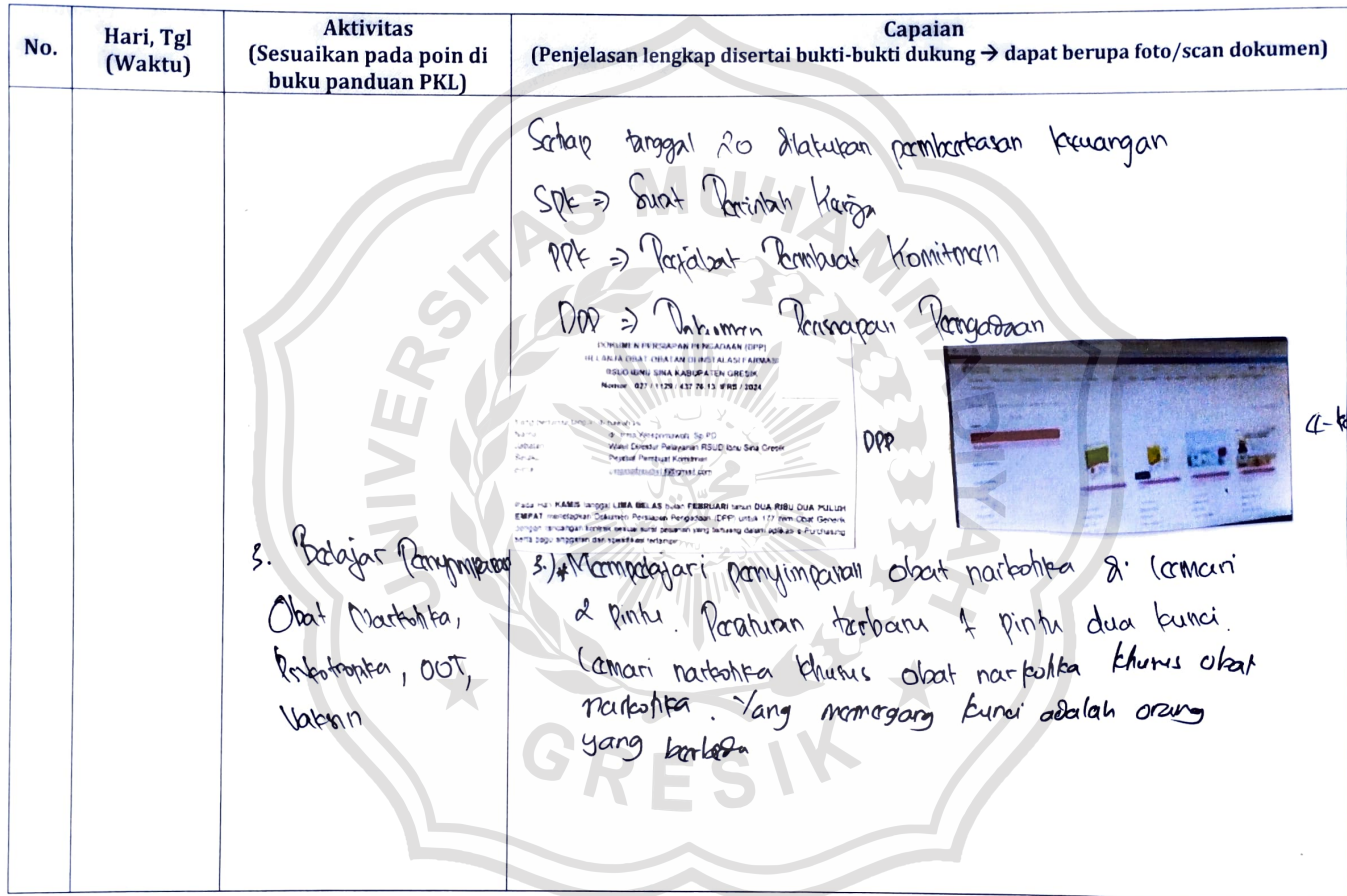 No.
Hari, Tgl
(Waktu)
Aktivitas
(Sesuaikan pada poin di
buku panduan PKL)
Capaian
(Penjelasan lengkap disertai bukti-bukti dukung → dapat berupa foto/scan dokumen)
Setiap tanggal 20 dilakukan pemberkasan keuangan
SPK => Surat Perintah Kerja
PPK => Pejabat Pembuat Komitmen
DPP => Dokumen Persiapan Pengadaan
DOKUMEN PERSIAPAN PENGADAAN (DPP)
BELANJA OBAT-OBATAN DI INSTALASI FARMASI
RSUD IBNU SINA KABUPATEN GRESIK
Nomor : 027 / 1129 / 437.76.13 IFRS / 2024
Yang bertanda tangan di bawah ini
Nama
Wakil Direktur Pelayanan RSUD Ibnu Sina Gresik
Pejabat Pembuat Komitmen
Pada hari KAMIS tanggal LIMA BELAS bulan FEBRUARI tahun DUA RIBU DUA PULUH
EMPAT menetapkan Dokumen Persiapan Pengadaan (DPP) untuk 177 item Obat Generik
dengan rancangan kontrak sesuai surat pesanan yang tertuang dalam aplikasi e-Purchasing
serta pagu anggaran dan spesifikasi terlampir
DPP
3. Belajar Penyimpanan
Obat Narkotika,
Psikotropika, OOT,
Vaksin
3.) * Mempelajari penyimpanan obat narkotika di lemari
2 pintu. Peraturan terbaru 1 pintu dua kunci.
Lemari narkotika khusus obat narkotika khusus obat
narkotika. Yang memegang kunci adalah orang
yang berbeda
UNIVERSITAS MUHAMMADIYAH
GRESIK